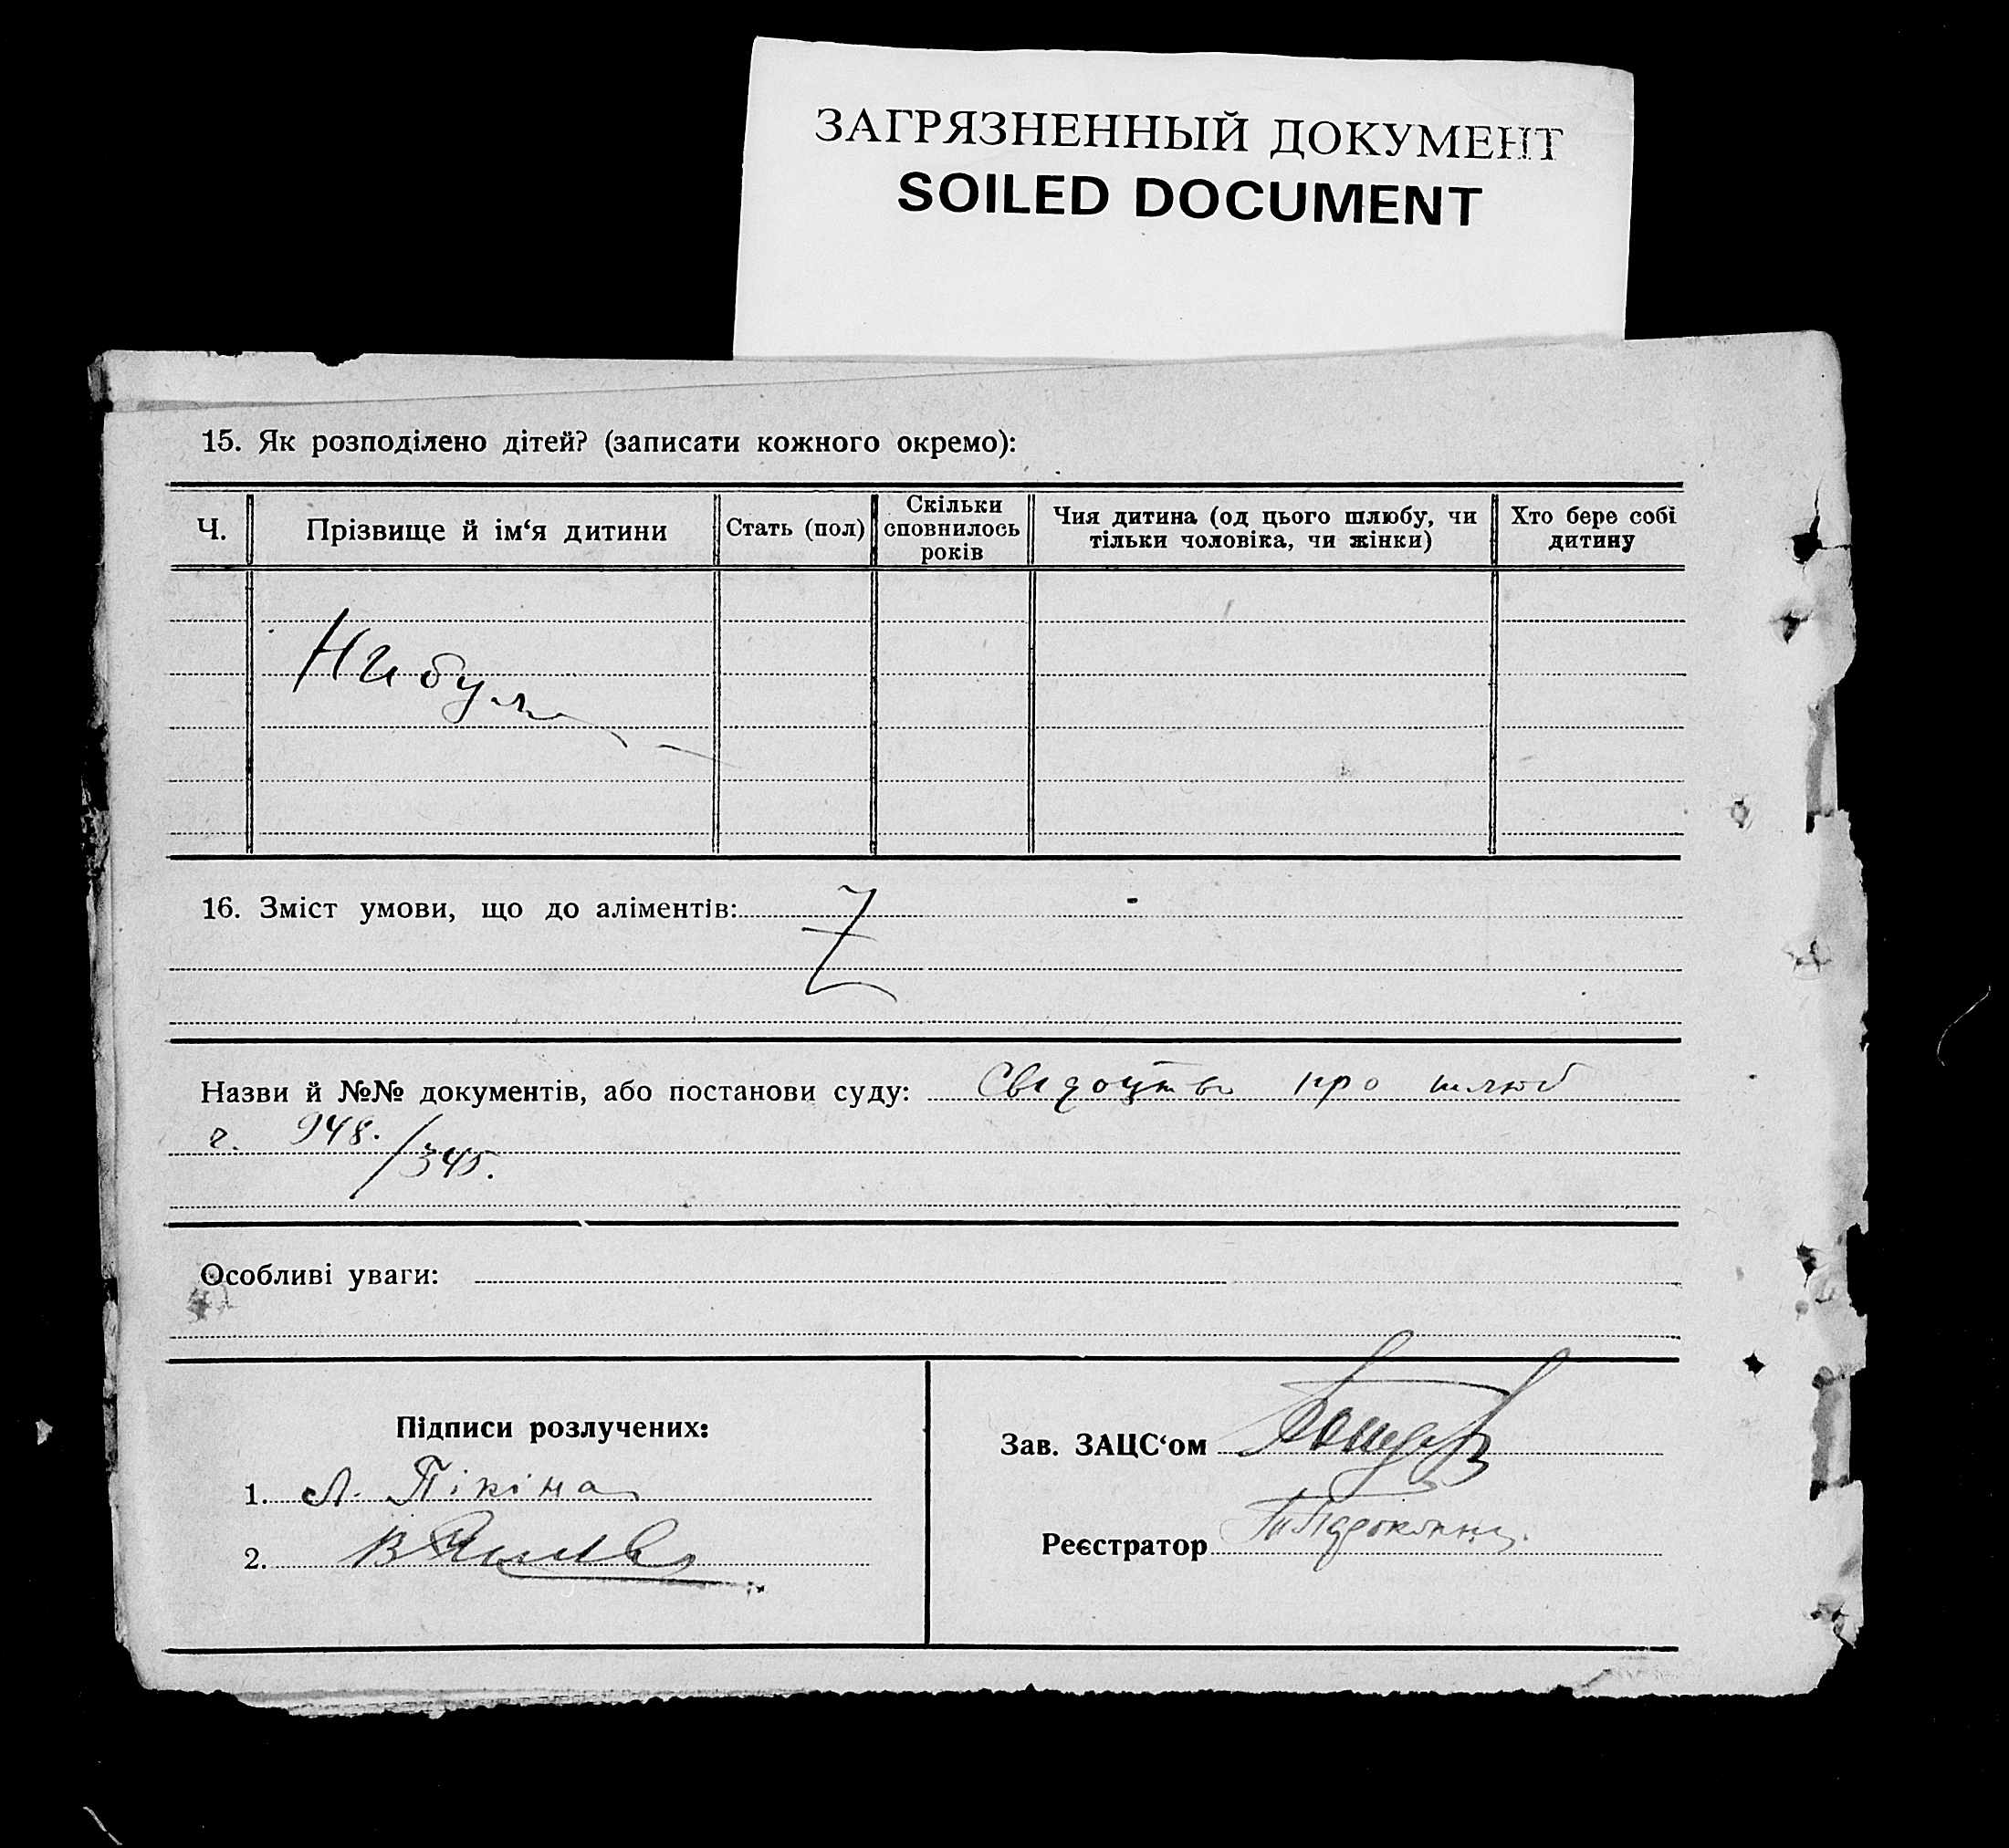 ЗАГРЯЗНЕННЫЙ ДОКУМЕНТ
SOILED DOCUMENT
15. Як розподілено дітей? (записати кожного окремо):
Ч. Прізвище й ім‘я дитини Стать (пол) Скільки сповнилось років Чия дитина (од цього шлюбу, чи тільки чоловіка, чи жінки) Хто бере собі дитину
16. Зміст умови, що до аліментів: Z
Назви й №№ документів, або постанови суду: Свідоцтво про шлюб
ч. 948./345.
Особливі уваги:
Підписи розлучених:
1. Л. Пікіна
2.
Зав. ЗАЦС‘ом
Реєстратор